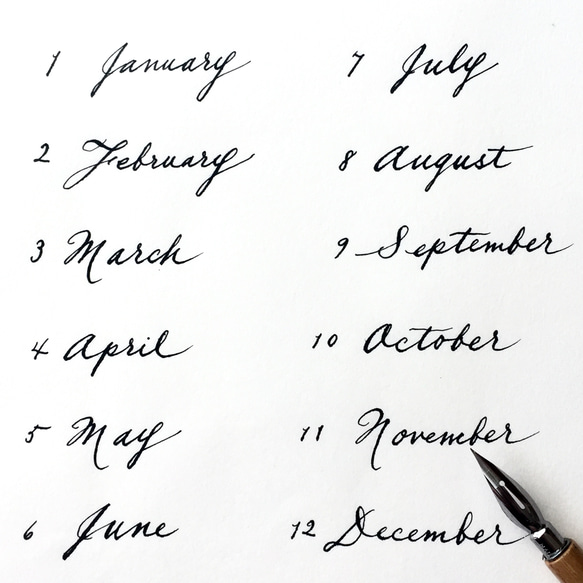 1 January
2 February
3 March
4 April
5 May
6 June
7 July
8 August
9 September
10 October
11 November
12 December